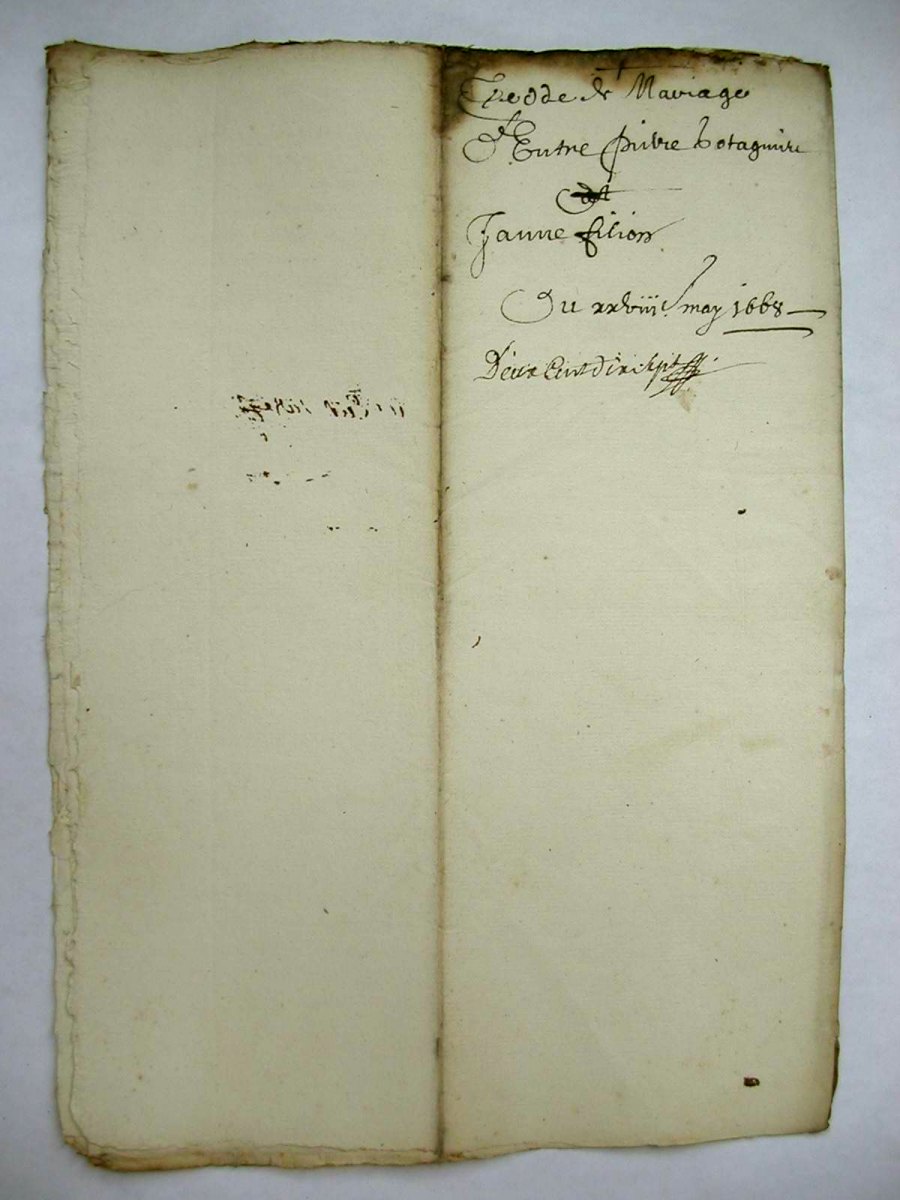 Treode de Mariage
D'Entre pierre botaguine
Et
Janne filion
Du xxviii may 1668
Deux Cent dix sept